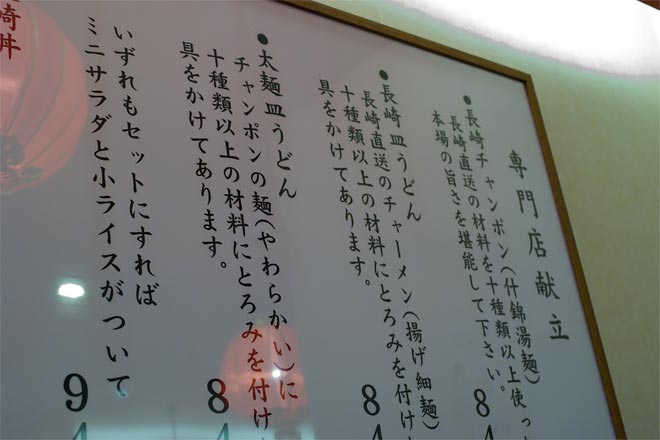 専門店献立
●長崎チャンポン(什錦湯麺)
長崎直送の材料を十種類以上使っ
本場の旨さを堪能して下さい。
84
●長崎皿うどん
長崎直送のチャーメン(揚げ細麺)
十種類以上の材料にとろみを付け
具をかけてあります。
84
●太麺皿うどん
チャンポンの麺(やわらかい)に
十種類以上の材料にとろみを付け
具をかけてあります。
84
いずれもセットにすれば
ミニサラダと小ライスがついて
94
崎丼